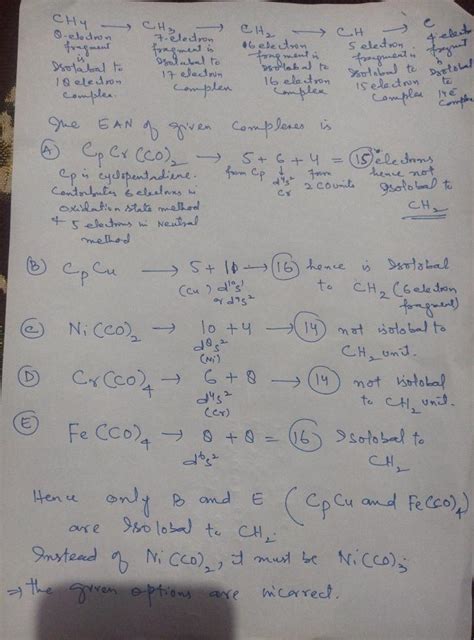 CH4 → CH3 → CH2 → CH → C
8-electron fragment is Isolabal to 18 electron Complex
7-electron fragment is Isolabal to 17 electron Complex
6 electron fragment is Isolobal to 16 electron Complex
5 electron fragment is Isolobal to 15 electron Complex
4 electron fragment is Isolobal to 14e Complex
The EAN of given Complexes is
(A) CpCr(CO)2 → 5 + 6 + 4 = 15 electrons
from Cp d4s2 Cr from 2 CO units
hence not Isolobal to CH2
Cp is cyclopentadiene.
Contributes 6 electrons in
Oxidation state method
& 5 electrons in Neutral
method
(B) CpCu → 5 + 10 → 16 hence is Isolobal
(Cu) d10s1 or d9s2
to CH2 (6 electron fragment)
(C) Ni(CO)2 → 10 + 4 → 14 not isolobal to
d8s2 (Ni)
CH2 unit.
(D) Cr(CO)4 → 6 + 8 → 14 not isolobal
d4s2 (Cr)
to CH2 unit.
(E) Fe(CO)4 → 8 + 8 = 16 Isolobal to
d6s2
CH2
Hence only B and E (CpCu and Fe(CO)4)
are Isolobal to CH2.
Instead of Ni(CO)2, it must be Ni(CO)3
⇒ the given options are incorrect.